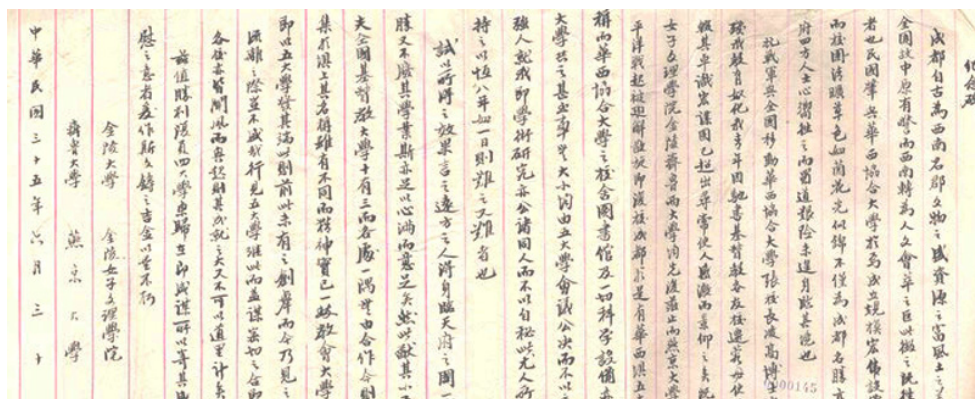 紀念碑
成都自古為西南名郡文物之盛資源之富風土之美
全國政中原有警而西南轉為人文會萃之區此徵之既往
者也民國肇興華西協合大學於焉成立規模宏偉設
而校園清曠草色如茵花光似錦不僅為成都名勝
府四方人士心嚮往之而蜀道艱險未遑身臨其境也
抗戰軍興全國移動華西協合大學張校長凌高博士
殘我教育奴化我青年因馳書基督教各友校遷蓉毋使
較其卓識宏謀固已超出尋常使人感激而景仰之矣
女子文理學院金陵齊魯兩大學均先後蒞止而燕京大學
平洋戰起被迫解散旋即復校成都於是有華西壩五
稱而華西協合大學之校舍圖書館及一切科學設備
大學共之甚至事無大小均由五大學會議公決而不以
強人就我即學術研究亦公諸同人而不以自秘此尤人所
持之以恆八年如一日則難之又難者也
試以所得之效果言之遠方之人得身臨天府之國
勝又不廢其學業斯亦足以心滿而意足矣然此猶其小
夫全國基督教大學十有三而各處一隅無由合作今則
集於壩上其名稱雖有不同而精神實已一致教會大學
即以五大學發其端此則前此未有之創舉而今乃見之
流離之際豈不盛哉行見五大學繼此而益謀密切之合
各校亦皆聞風而興起則其成就之大又不可以道里計矣
茲值勝利復員四大學東歸在即咸謀所以寄其
慰之意者爰作斯文鐫之吉金以垂不朽
金陵大學 金陵女子文理學院
齊魯大學 燕京大學
中華民國三十五年六月三十
0000145